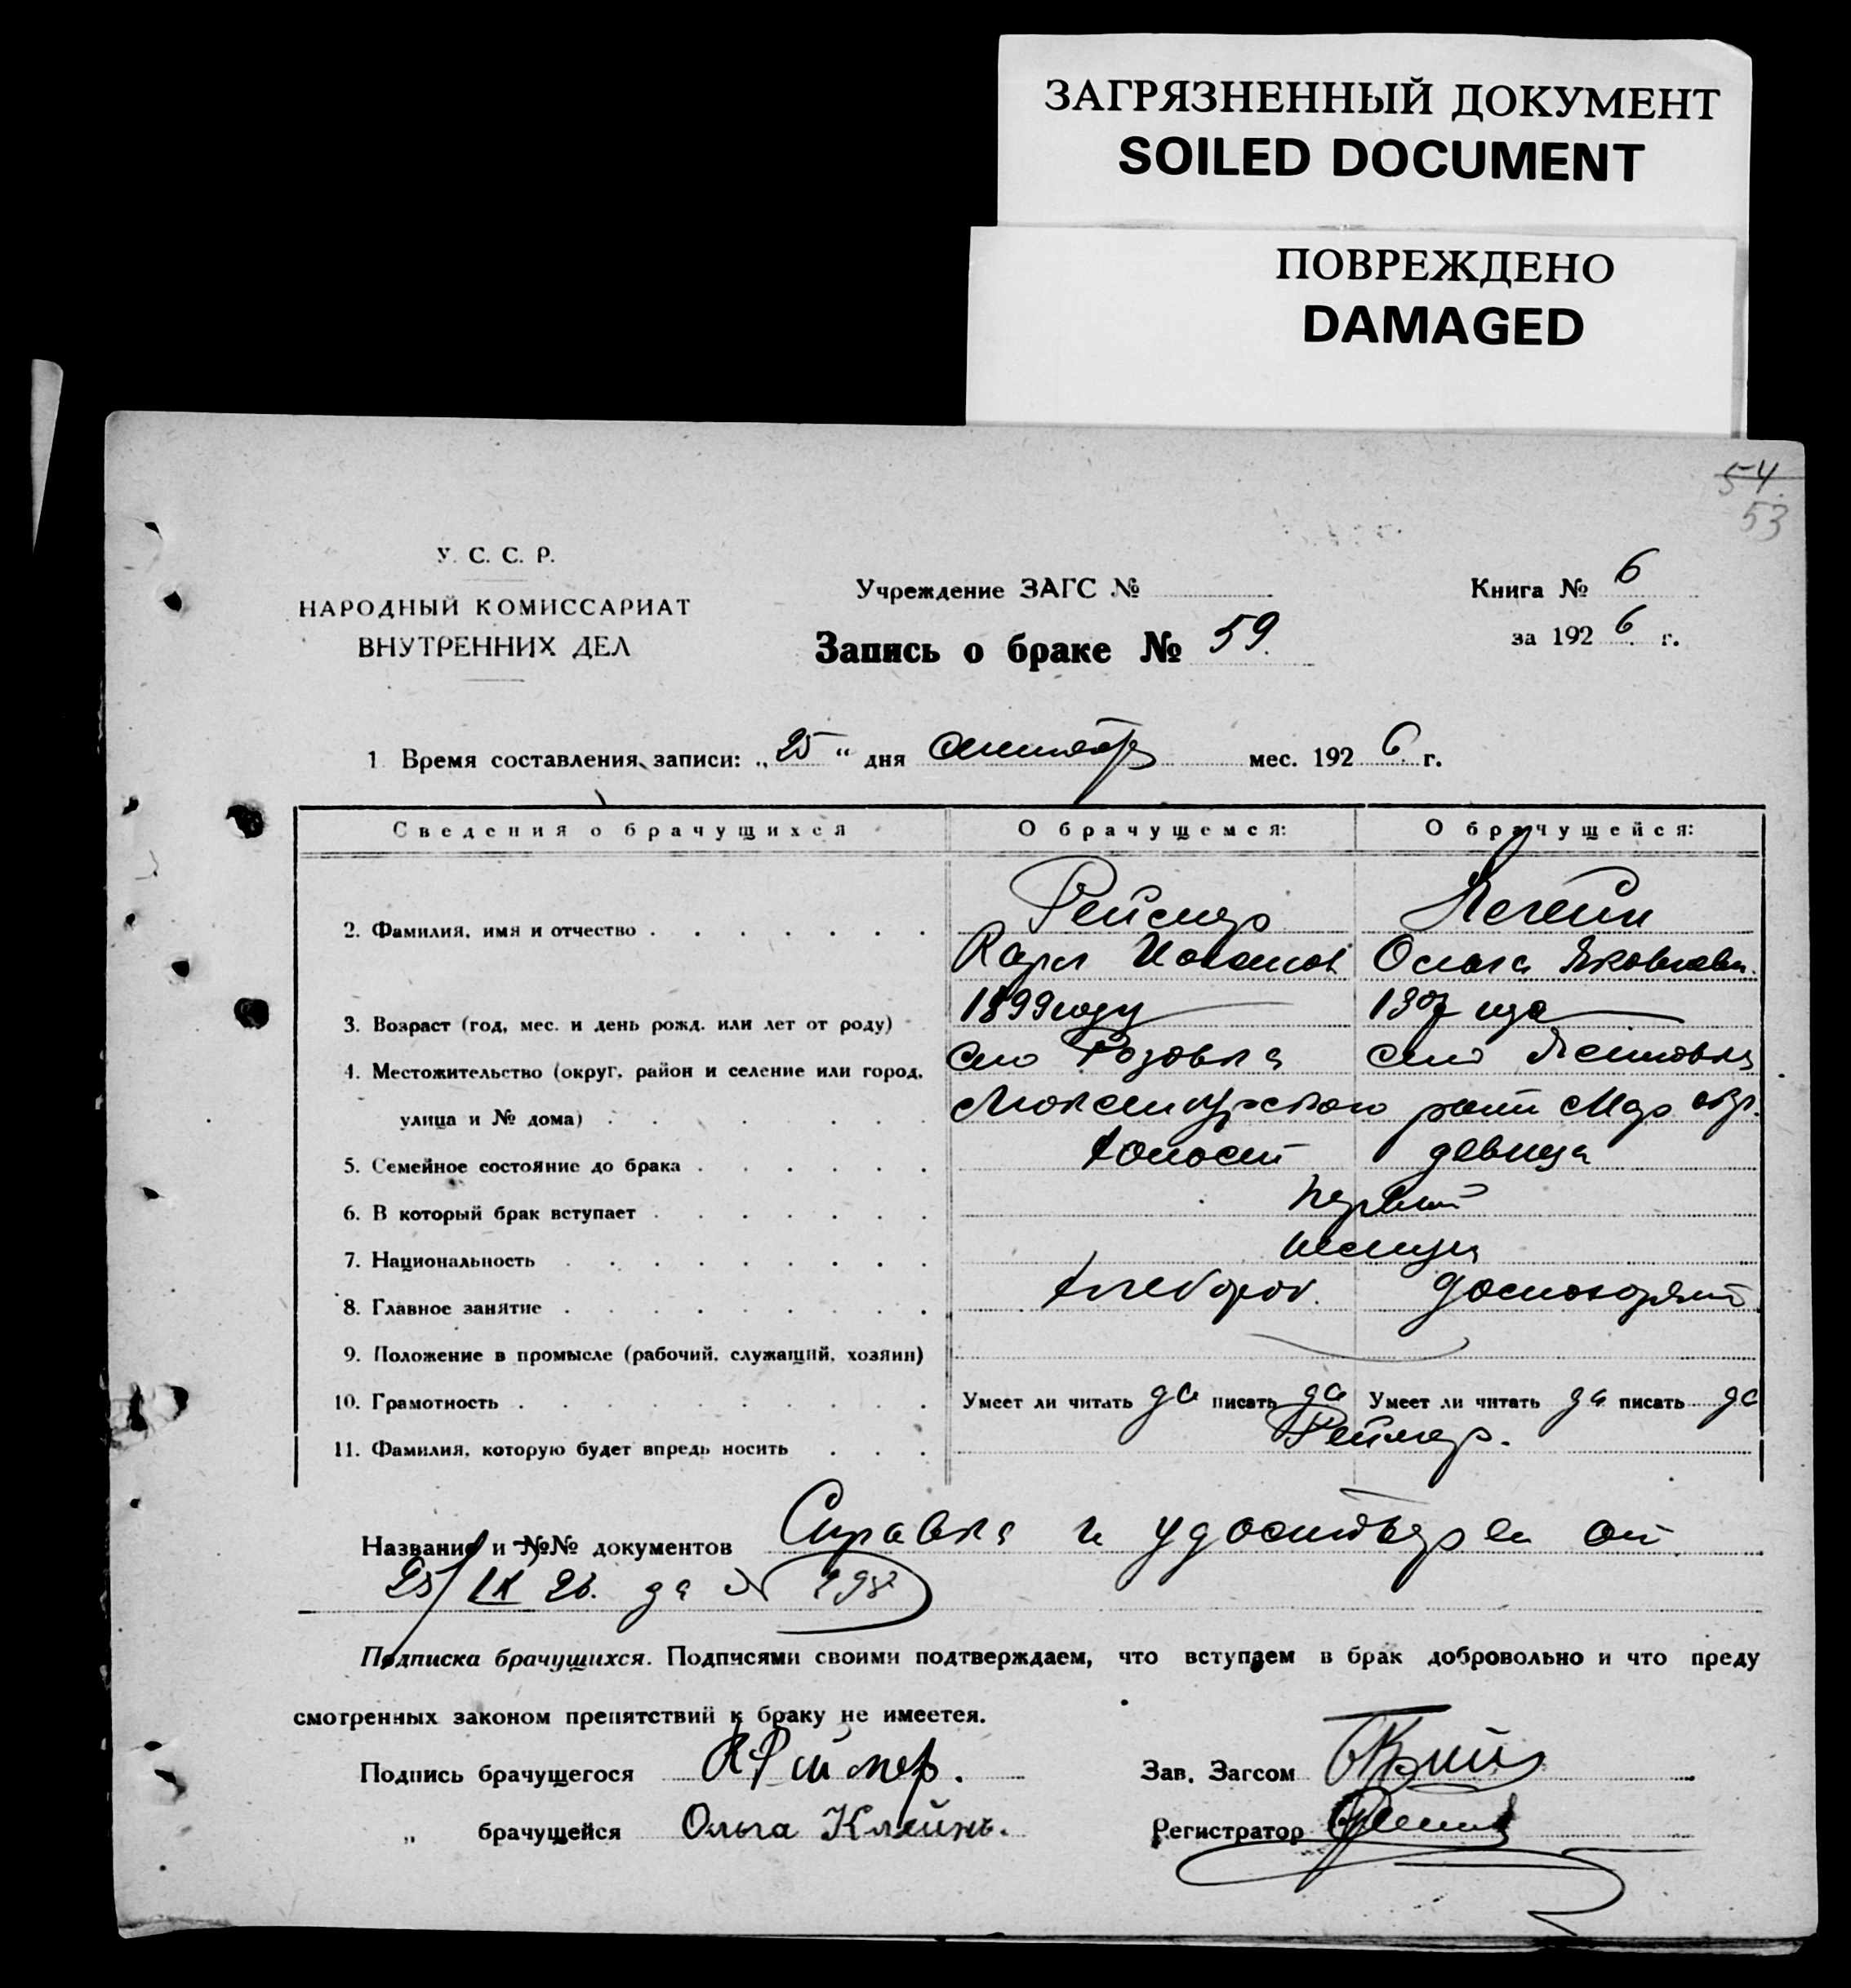 ЗАГРЯЗНЕННЫЙ ДОКУМЕНТ
SOILED DOCUMENT
ПОВРЕЖДЕНО
DAMAGED
54
53
У. С. С. Р.
НАРОДНЫЙ КОМИССАРИАТ
ВНУТРЕННИХ ДЕЛ
Учреждение ЗАГС №
Книга № 6
за 1926 г.
Запись о браке № 59.
1 Время составления записи: „25“ дня сентября мес. 1926 г.
Сведения о брачущихся О брачущемся: О брачущейся:
2. Фамилия, имя и отчество Реймер Клейн
Карл Иоганов Ольга Яковлевн.
3. Возраст (год, мес. и день рожд. или лет от роду) 1899 году 1907 года
4. Местожительство (округ, район и селение или город, село Розовка село
улица и № дома) Люксембургского Мар окр.
5. Семейное состояние до брака холост девица
6. В который брак вступает первый
7. Национальность немцы
8. Главное занятие хлебороб.
9. Положение в промысле (рабочий, служащий, хозяин)
10. Грамотность Умеет ли читать да писать да Умеет ли читать да писать да
11. Фамилия, которую будет впредь носить Реймер.
Название и №№ документов Справка и удостверен от
25/IX 26. за №
Подписка брачущихся. Подписями своими подтверждаем, что вступаем в брак добровольно и что преду
смотренных законом препятствий к браку не имеется.
Подпись брачущегося К Реймер.
Зав. Загсом
„ брачущейся Ольга Клейнъ.
Регистратор